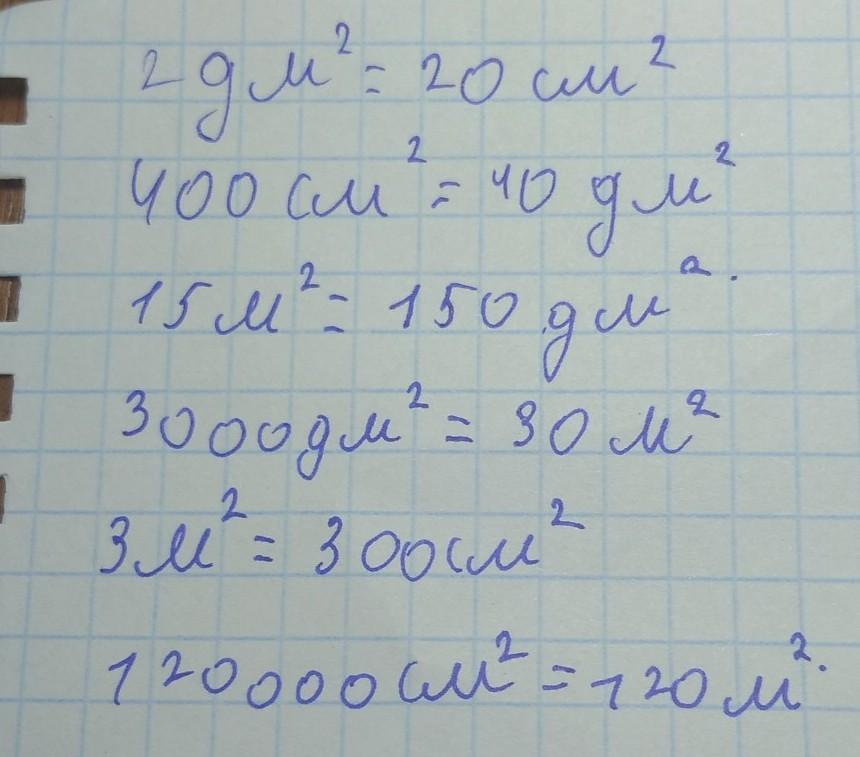 2 дм² = 20 см²
400 см² = 40 дм²
15 м² = 150 дм².
3000 дм² = 30 м²
3 м² = 300 см²
120000 см² = 120 м².